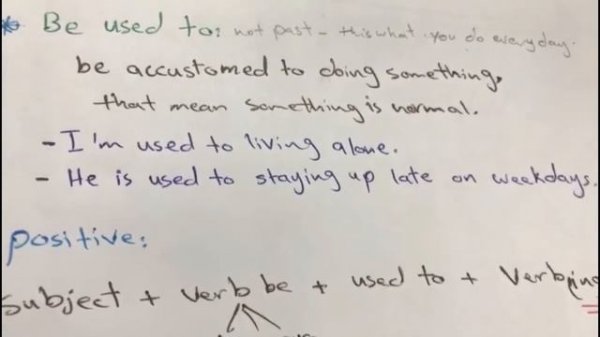 * Be used to: not past - this what you do everyday.
be accustomed to doing something,
that mean something is normal.
- I'm used to living alone.
- He is used to staying up late on weekdays.
positive:
Subject + verb be + used to + Verb(ing